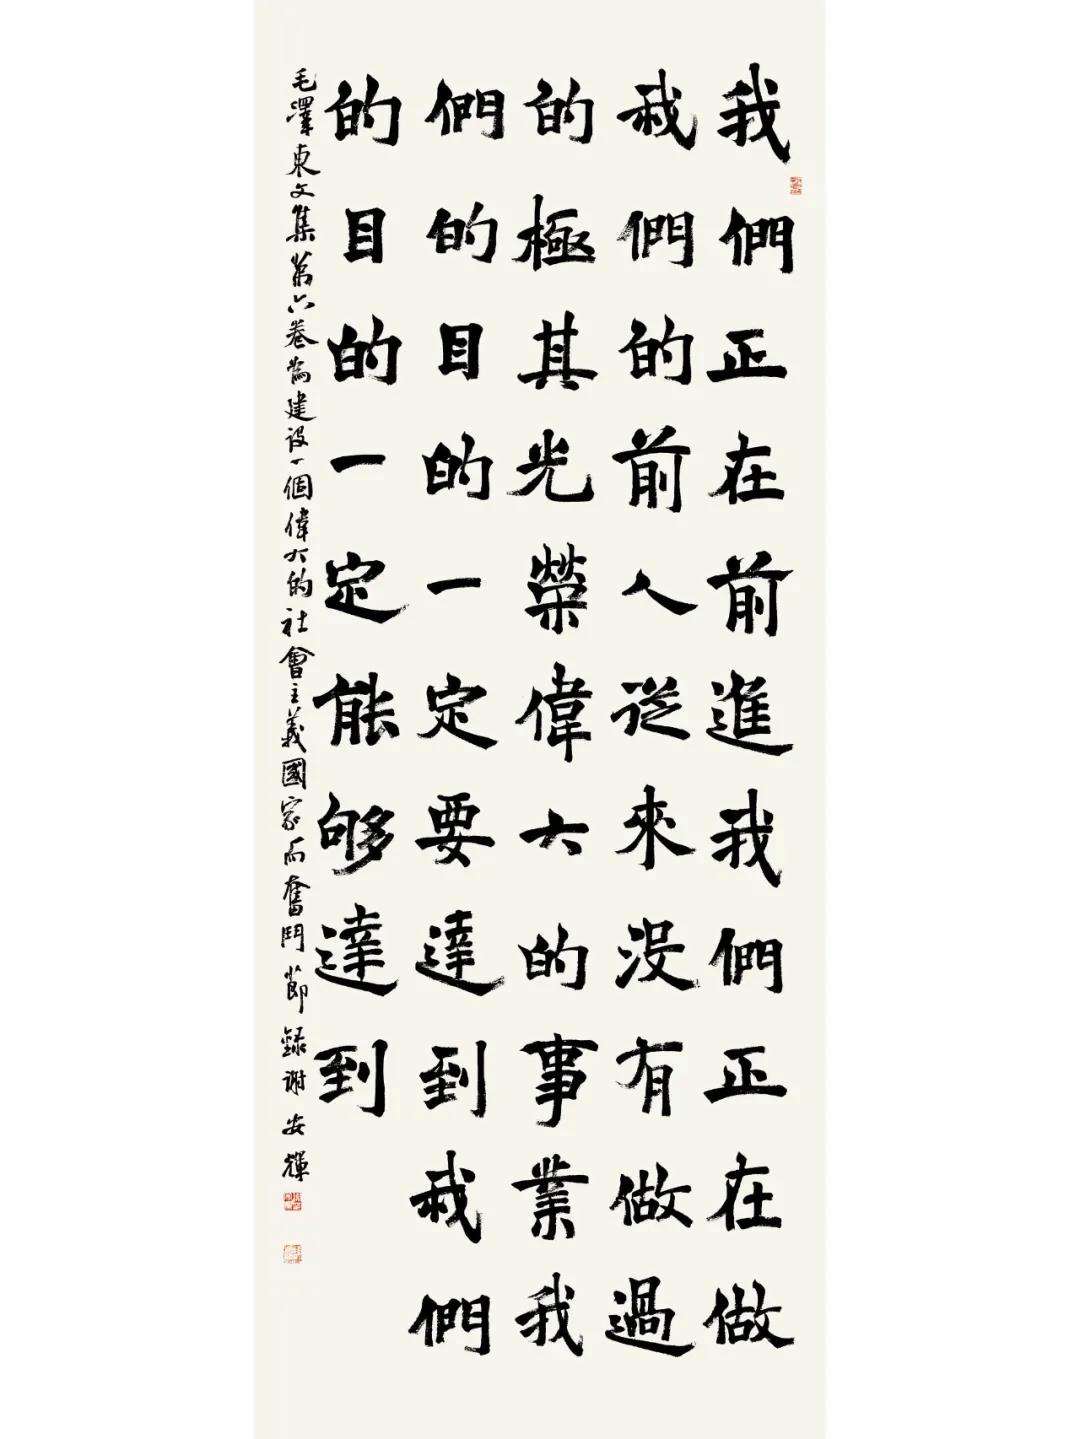 我們正在前進我們正在做
我們的前人從來沒有做過
的極其光榮偉大的事業我
們的目的一定要達到我們
的目的一定能够達到
毛澤東文集第六卷為建設一個偉大的社會主義國家而奮鬥節錄謝安輝